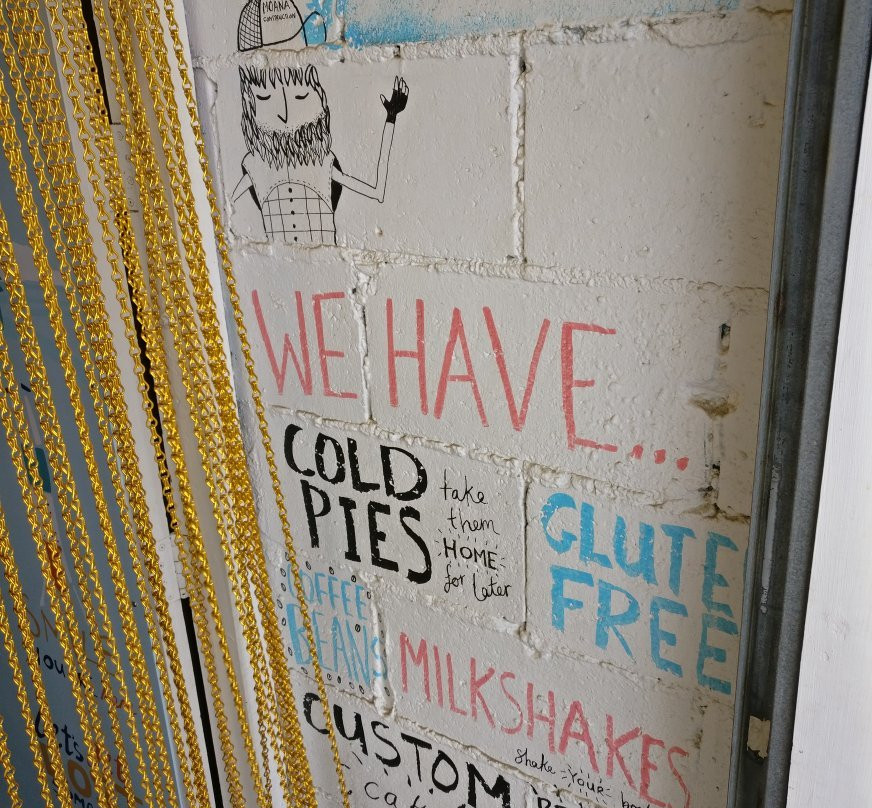 MOANA
CONSTRUCTION
WE HAVE...
COLD
PIES
take
them
HOME
for later
GLUTE
FREE
COFFEE
BEANS
MILKSHAKES
shake your
CUSTOM